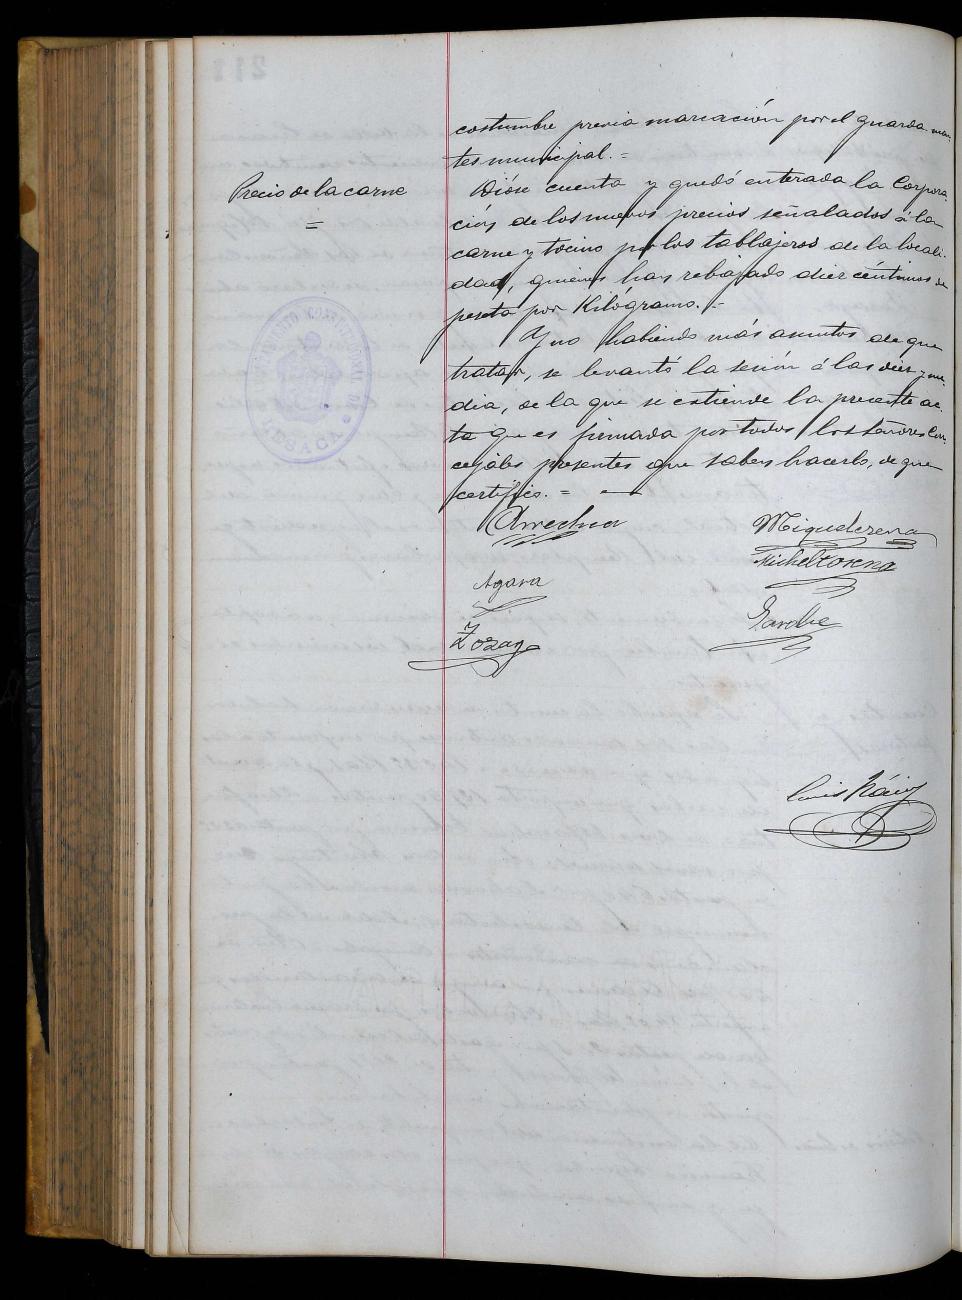 costumbre previa marcación por el guarda mon-
tes municipal.=
Precio de la carne
=
Dióse cuenta y quedó enterada la Corpora-
ción de los nuevos precios señalados á la
carne y tocino por los tablajeros de la locali-
dad, quienes han rebajado diez céntimos de
peseta por Kilógramo.=
Y no habiendo más asuntos de que
tratar, se levantó la sesión á las diez y me-
dia, de la que se estiende la presente ac-
ta que es firmada por todos los señores Con-
cejales presentes que saben hacerlo, de que
certifico.=
AYUNTAMIENTO CONSTITUCIONAL DE
LESACA
Arrechea
Miguelzorena
Michelzorena
Agara
Garolie
Zozaya
Luis